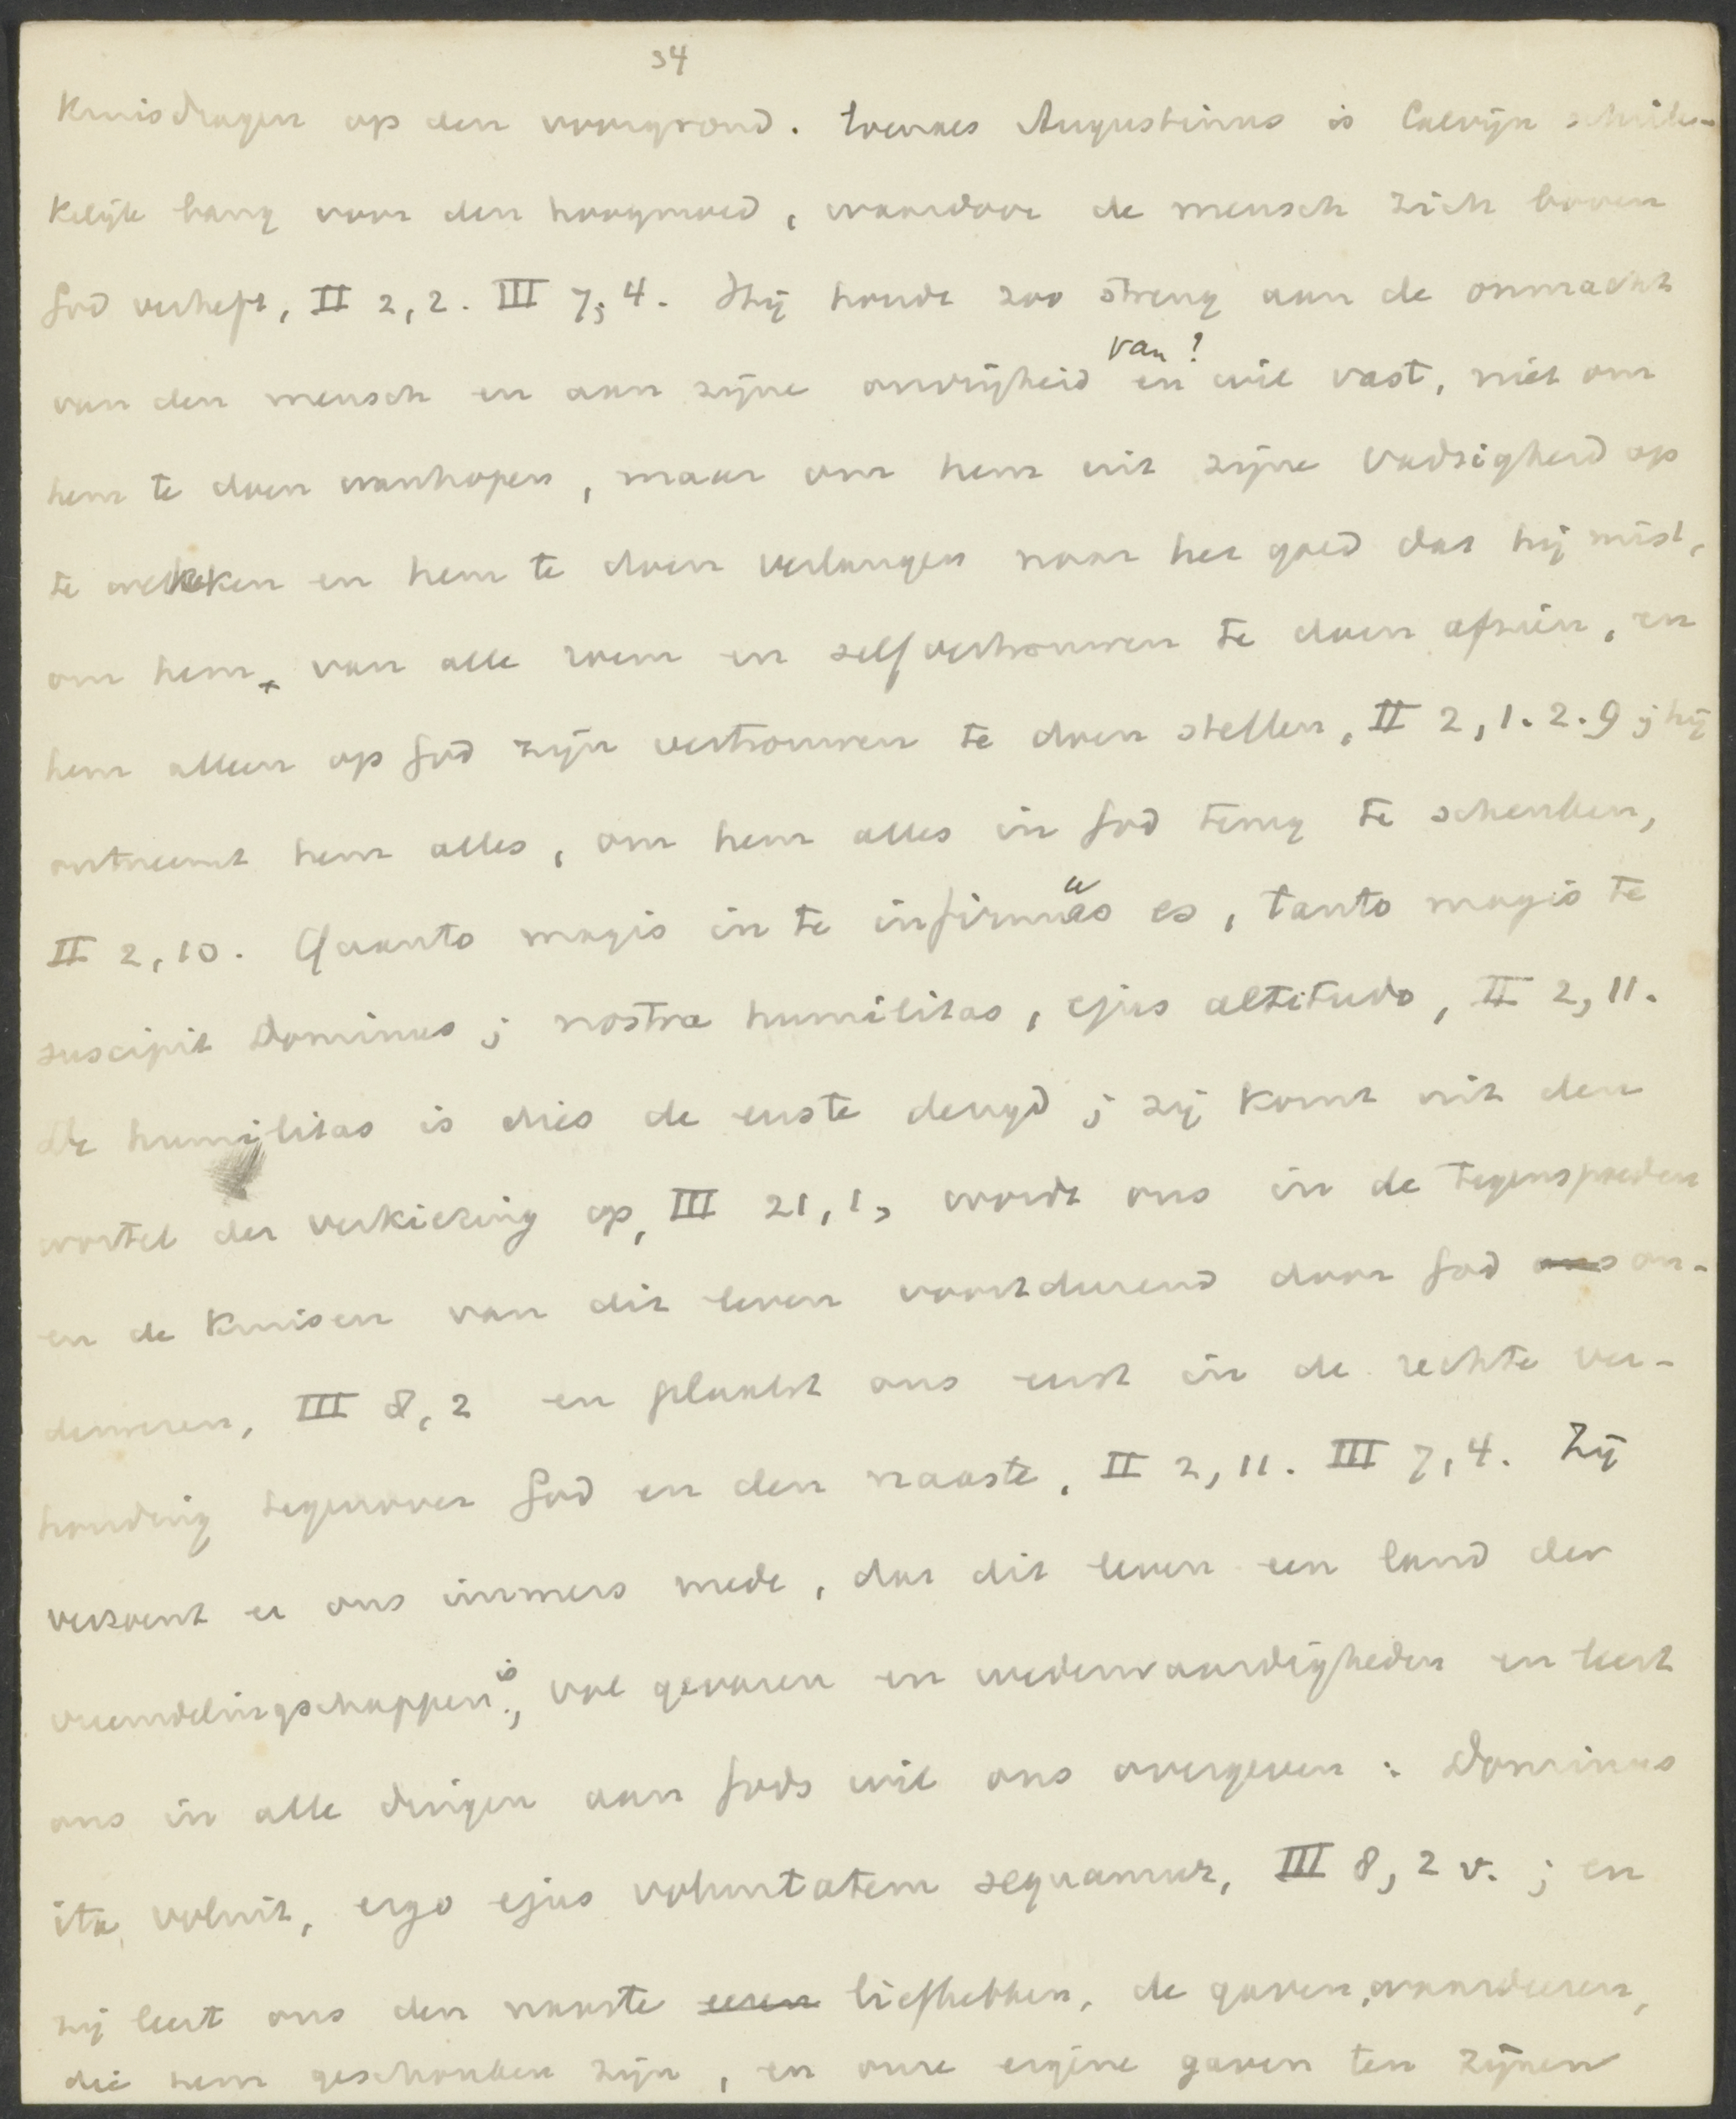 34
Kruisdragen op den voorgrond. Evenals Augustinus is Calvijn schrik-
kelijk bang voor den hoogmoed, waardoor de mensch zich boven
God verheft, II 2,2. III 7,4. Hij houdt zoo streng aan de onmacht
van ?
van den mensch en aan zijne onvrijheid en wil vast, niet om
hem te doen wanhopen, maar om hem uit zijne vadzigheid op
te wekken en hem te doen verlangen naar het goed dat hij mist,
om hem van alle roem en zelfvertrouwen te doen afzien, en
hem alleen op God zijn vertrouwen te doen stellen, II 2,1.2.9; hij
ontneemt hem alles, om hem alles in God terug te schenken,
II 2,10. Quanto magis in te infirmus es, tanto magis te
suscipit Dominus; nostra humilitas, ejus altitudo, II 2,11.
De humilitas is dies de eerste deugd; zij komt uit den
wortel der verkiezing op, III 21,1, wordt ons in de tegenspoeden
en de kruisen van dit leven voortdurend door God ons on-
derwezen, III 8,2 en plaatst ons eerst in de rechte ver-
houding tegenover God en den naaste, II 2,11. III 7,4. Zij
verzoent er ons immers mede, dat dit leven een land der
vreemdelingschappen is, vol gevaren en wederwaardigheden en leert
ons in alle dingen aan Gods wil ons overgeven: Dominus
ita voluit, ergo ejus voluntatem sequamur, III 8,2 v.; en
zij leert ons den naaste eeren liefhebben, de gaven waardeeren,
die hem geschonken zijn, en onze eigene gaven ten zijnen